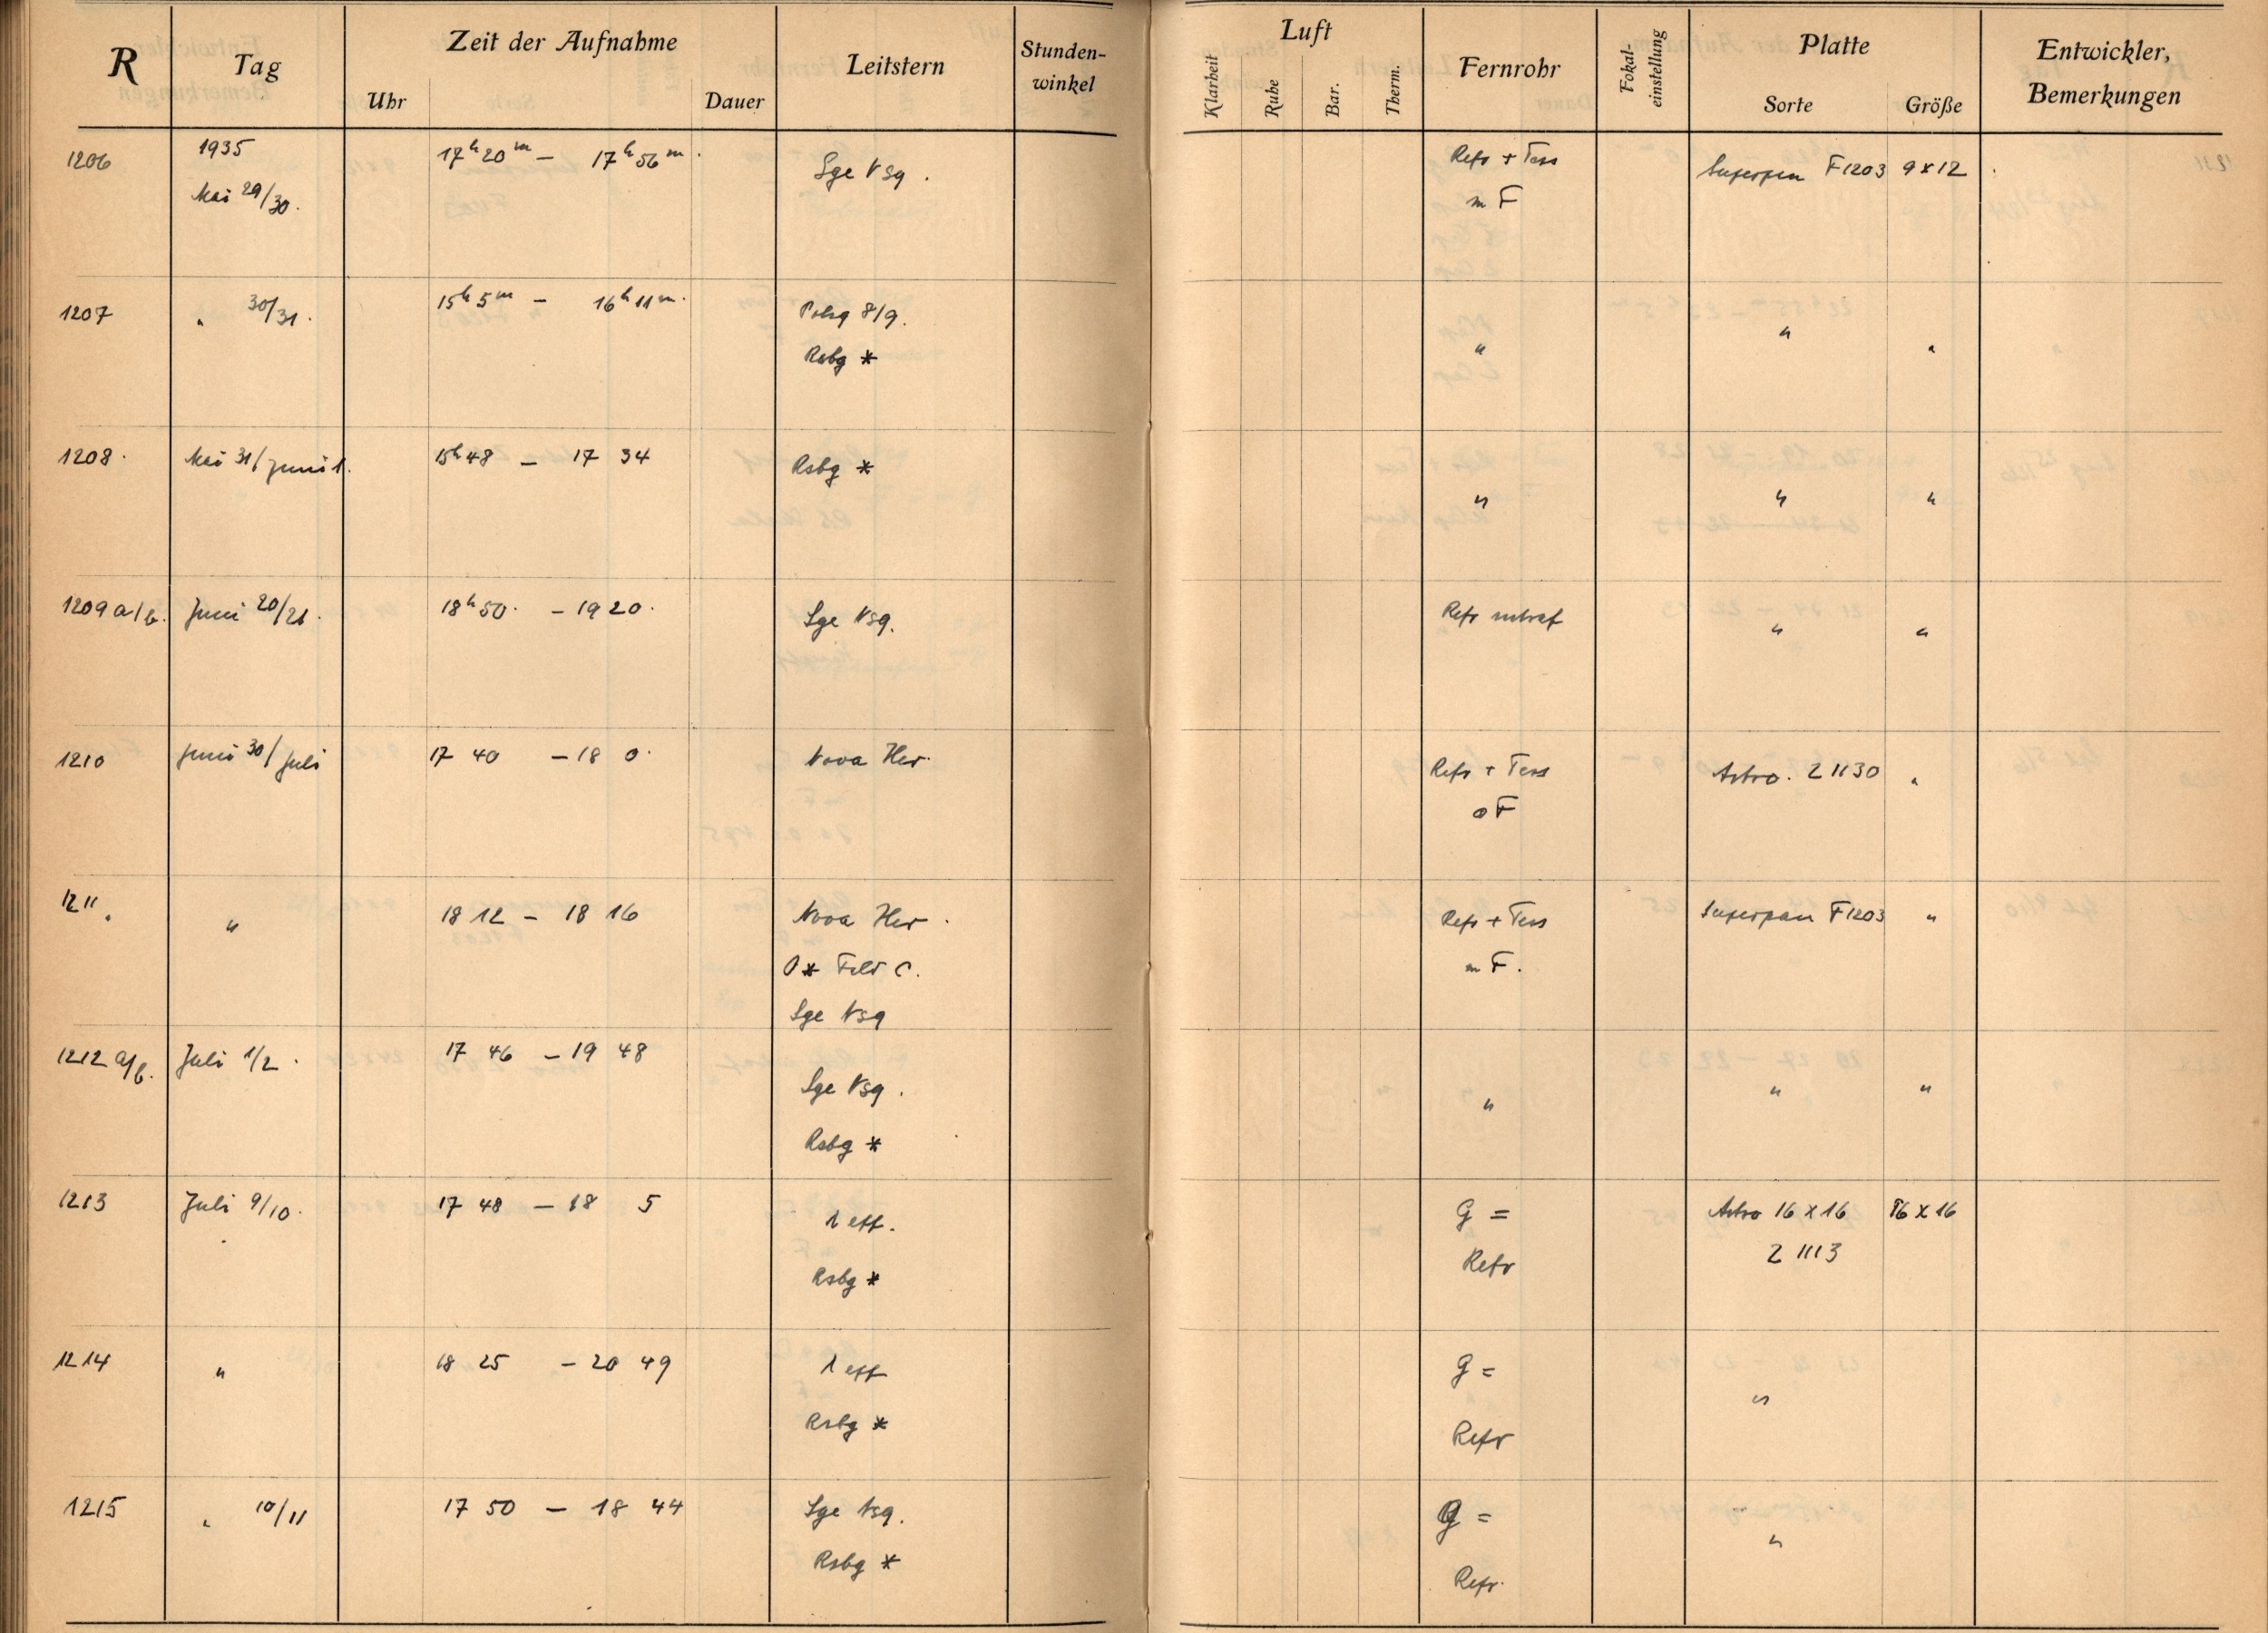 R Tag Zeit der Aufnahme Leitstern Stunden-winkel Luft Fernrohr Fokal-einstellung Platte Entwickler, Bemerkungen
Uhr Dauer Klarheit Ruhe Bar. Therm. Sorte Größe
1206 1935 17h 20m – 17h 56m. Sge Vsg. Refr + Tess Superpan F1203 9x12
Mai 29/30. m F
1207 " 30/31. 15h 5m – 16h 11m. 8/9. " " "
Rsbg *
1208. Mai 31/Juni 1. 15h 48 – 17 34 Rsbg * " " "
1209 a/b. Juni 20/21. 18h 50. – 19 20. Sge Vsg. Refr " "
1210 Juni 30/Juli 17 40 – 18 0. Nova Her. Refr + Tess Astro. 21130 "
o F
1211. " 18 12 – 18 16 Nova Her. Refr + Tess Superpan F1203 "
* Feld C. m F.
Sge Vsg
1212 a/b. Juli 1/2. 17 46 – 19 48 Sge Vsg. " " "
Rsbg *
1213 Juli 9/10. 17 48 – 18 5 1 eff. G = Astro 16 x 16 16 x 16
Rsbg * Refr 21113
1214 " 18 25 – 20 49 1 eff G = "
Rsbg * Refr
1215 " 10/11 17 50 – 18 44 Sge Vsg. G = "
Rsbg * Refr.